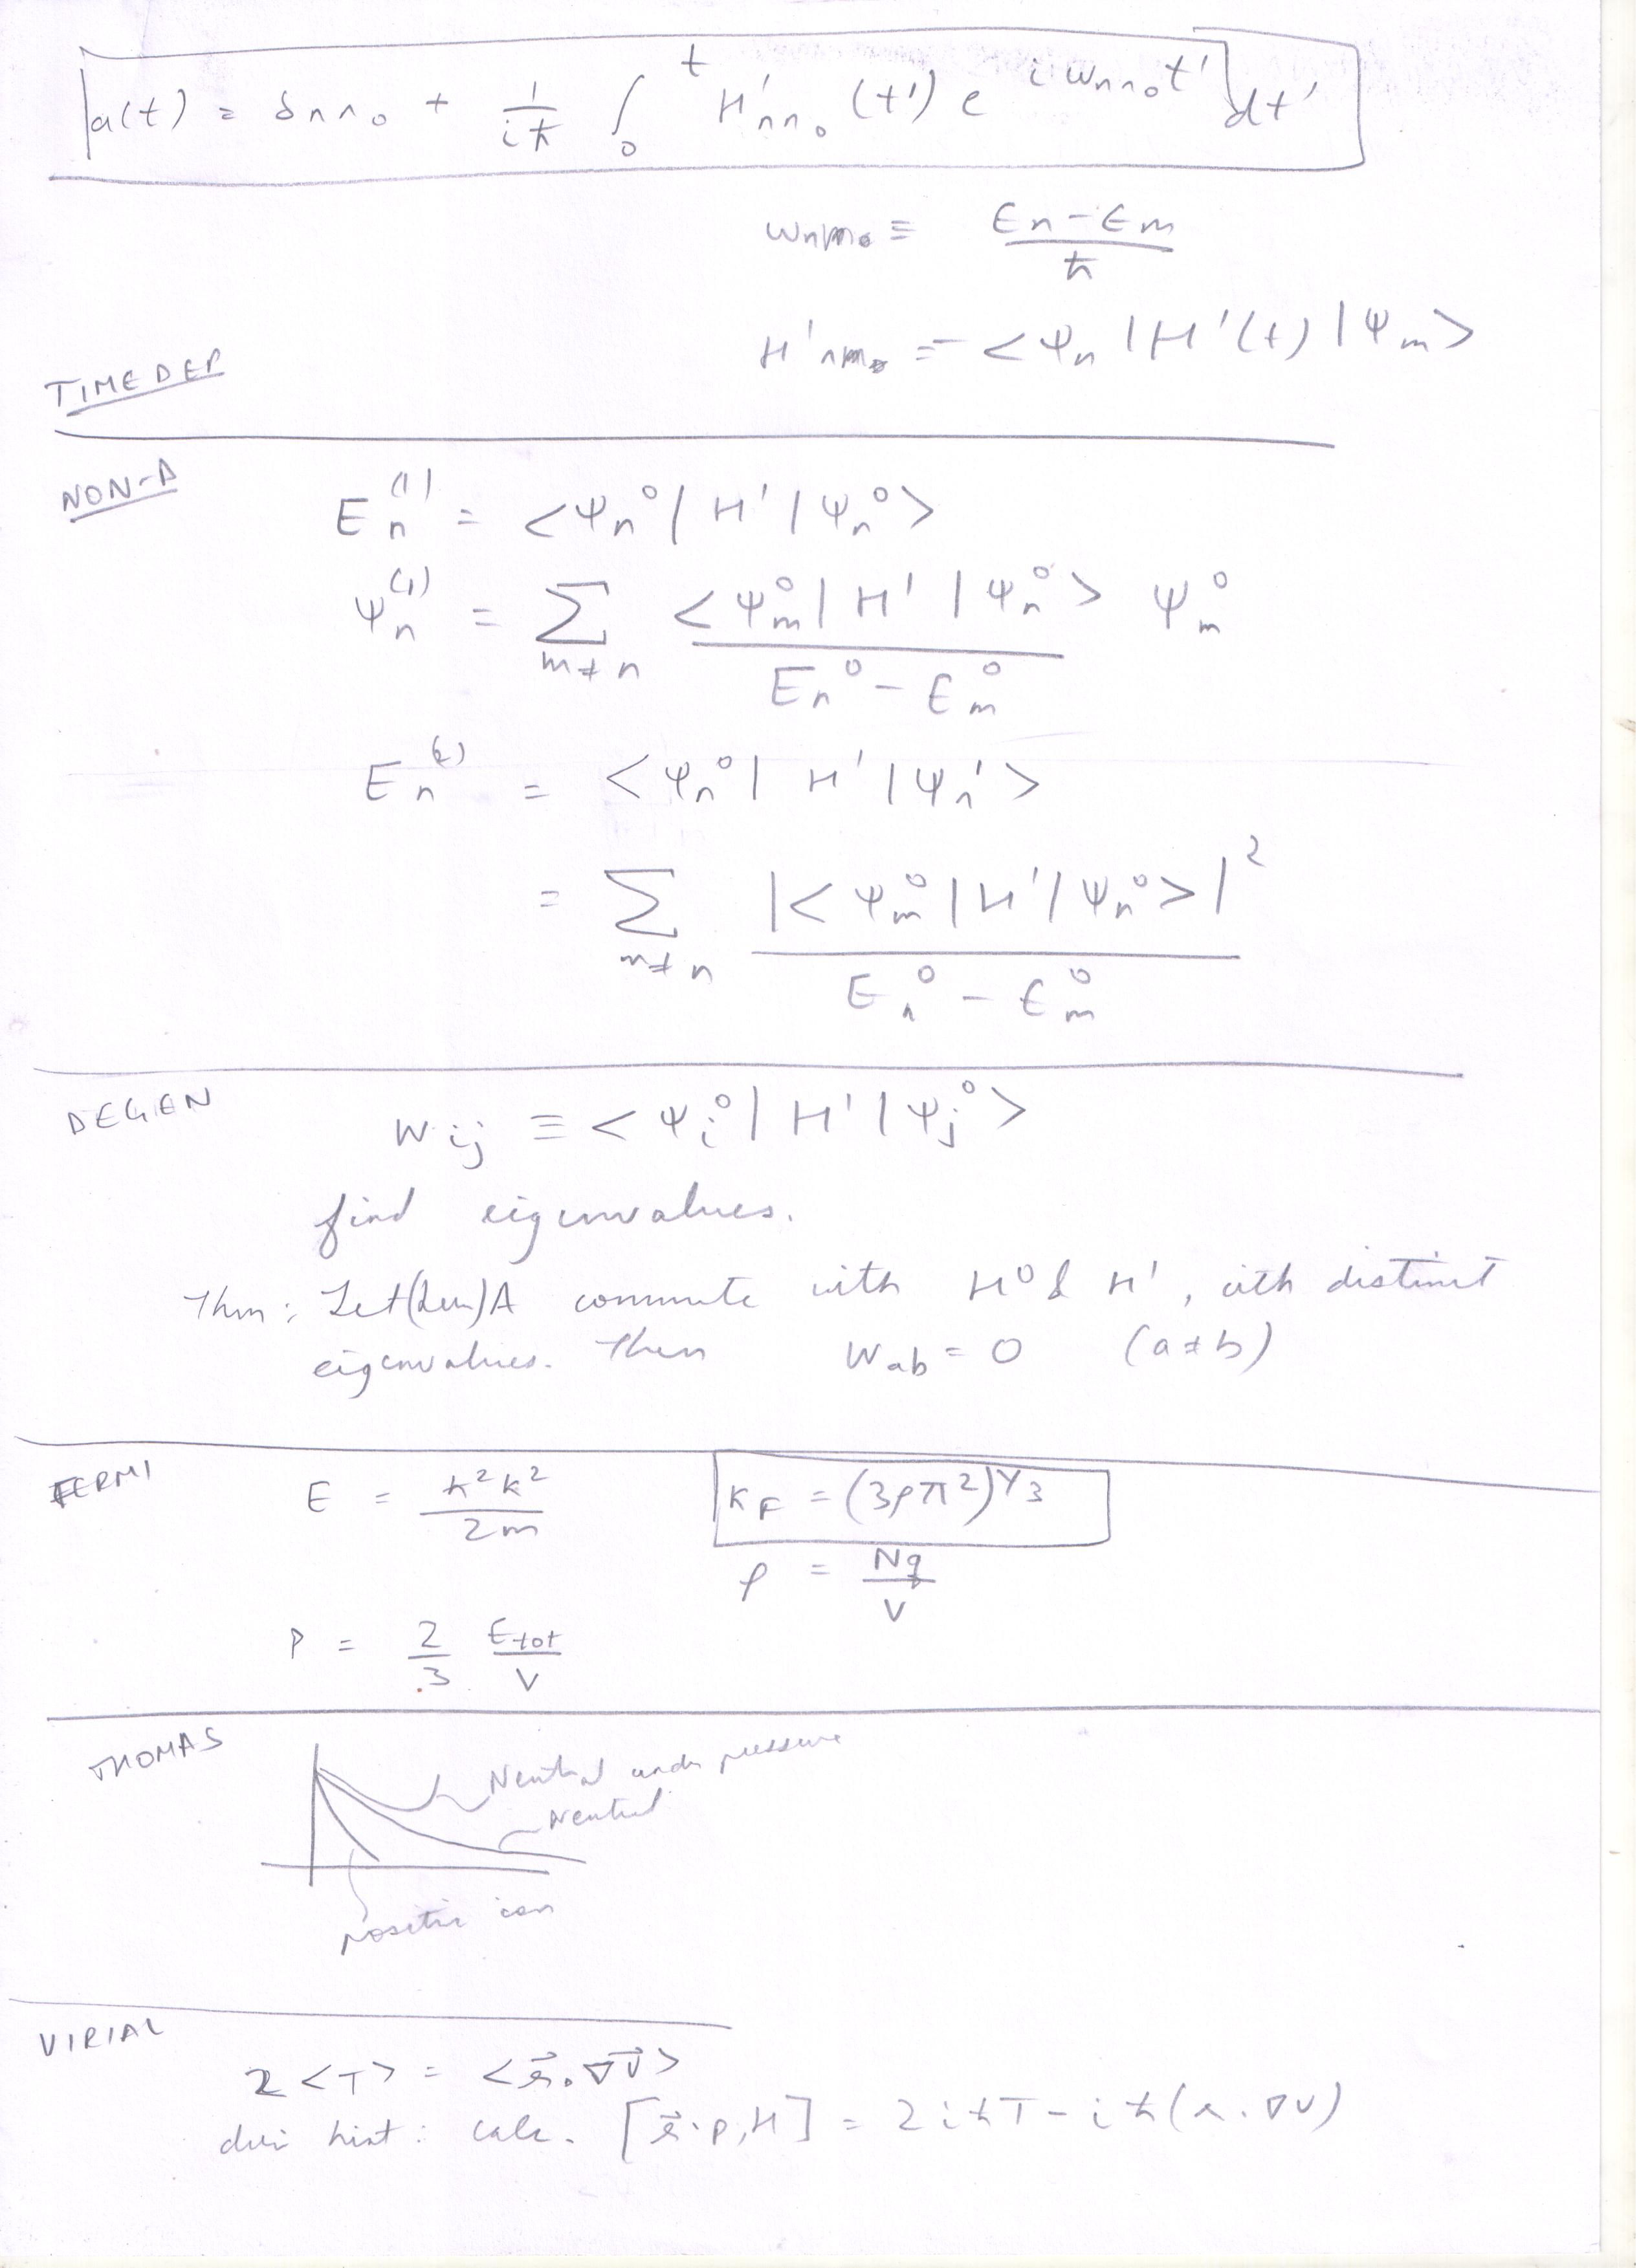 a(t) = δnn₀ + 1/iħ ∫₀ᵗ H'nn₀ (t') e^{iωnn₀t'} dt'
ωnm₀ ≡ (En - Em)/ħ
H'nm₀ = <Ψn | H'(t) | Ψm>
TIME DEP
NON-D
En⁽¹⁾ = <Ψn⁰ | H' | Ψn⁰>
Ψn⁽¹⁾ = Σ_{m≠n} <Ψm⁰ | H' | Ψn⁰> / (En⁰ - Em⁰) Ψm⁰
En⁽²⁾ = <Ψn⁰ | H' | Ψn'>
= Σ_{m≠n} |<Ψm⁰ | H' | Ψn⁰>|² / (En⁰ - Em⁰)
DEGEN
Wij ≡ <Ψi⁰ | H' | Ψj⁰>
find eigenvalues.
Thm: Let (Hem) A commute with H⁰ & H', with distinct
eigenvalues. Then Wab = 0 (a≠b)
FERMI
E = ħ²k²/2m
kF = (3ρπ²)^{1/3}
ρ = Nq/V
P = 2/3 Etot/V
THOMAS
Neutral under pressure
Neutral
positive ion
VIRIAL
2<T> = <r⃗·∇V⃗>
hint: calc. [r⃗·p, H] = 2iħT - iħ(r·∇V)